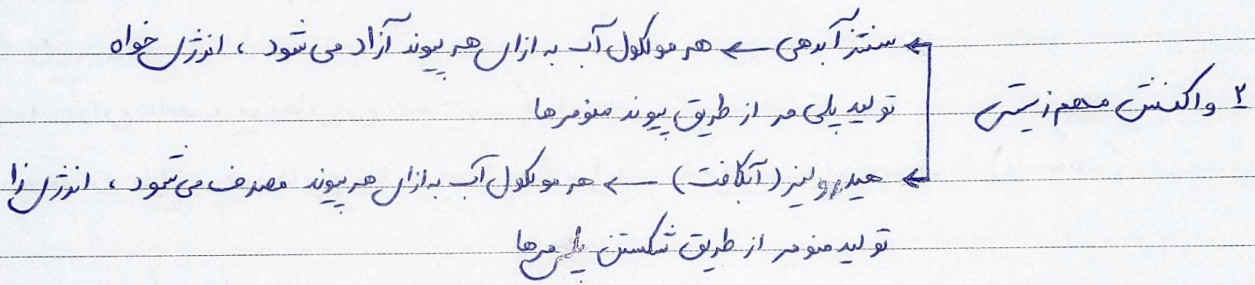 ۲ واکنش مهم زیستی
سنتز آبدهی ← هر مولکول آب به ازای هر پیوند آزاد می‌شود ، انرژی خواه
تولید پلی مر از طریق پیوند منومرها
هیدرولیز (آبکافت) ← هر مولکول آب به ازای هر پیوند مصرف می‌شود ، انرژی زا
تولید منومر از طریق شکستن پلی مرها